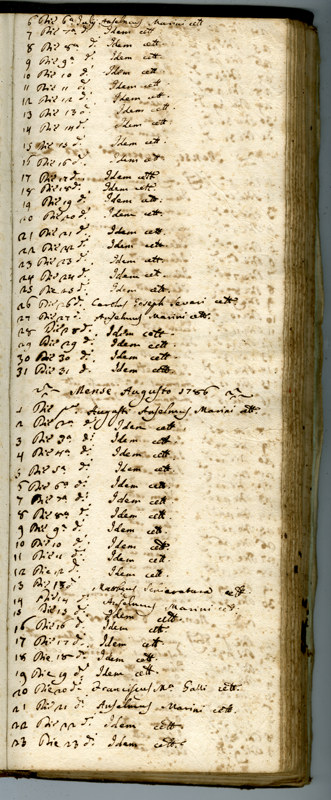 6 Die 6ª July Anselmus Marini cett
7 Die 7ª d.ⁱ Idem cett
8 Die 8ª d.ⁱ Idem cett
9 Die 9ª d.ⁱ Idem cett
10 Die 10 d.ⁱ Idem cett
11 Die 11 d.ⁱ Idem cett.
12 Die 12 d.ⁱ Idem cett.
13 Die 13 d.ⁱ Idem cett.
14 Die 14 d.ⁱ Idem cett
15 Die 15 d.ⁱ Idem cett
16 Die 16 d.ⁱ Idem cett
17 Die 17 d.ⁱ Idem cett.
18 Die 18 d.ⁱ Idem cett.
19 Die 19 d.ⁱ Idem cett.
20 Die 20 d.ⁱ Idem cett.
21 Die 21 d.ⁱ Idem cett.
22 Die 22 d.ⁱ Idem cett.
23 Die 23 d.ⁱ Idem cett.
24 Die 24 d.ⁱ Idem cett.
25 Die 25 d.ⁱ Idem cett.
26 Die 26 d.ⁱ Carolus Joseph cett.
27 Die 27 d.ⁱ Anselmus Marini cett.
28 Die 28 d.ⁱ Idem cett.
29 Die 29 d.ⁱ Idem cett.
30 Die 30 d.ⁱ Idem cett.
31 Die 31 d.ⁱ Idem cett.
Mense Augusto 1786
1 Die pª Augusti Anselmus Marini cett.
2 Die 2ª d.ⁱ Idem cett
3 Die 3ª d.ⁱ Idem cett.
4 Die 4ª d.ⁱ Idem cett.
5 Die 5ª d.ⁱ Idem cett.
6 Die 6ª d.ⁱ Idem cett.
7 Die 7ª d.ⁱ Idem cett.
8 Die 8ª d.ⁱ Idem cett.
9 Die 9ª d.ⁱ Idem cett.
10 Die 10 d.ⁱ Idem cett.
11 Die 11 d.ⁱ Idem cett.
12 Die 12 d.ⁱ Idem cett
13 Die 13 d.ⁱ cett
14 Die 14 d.ⁱ Anselmus Marini cett.
15 Die 15 d.ⁱ Idem cett.
16 Die 16 d.ⁱ Idem cett.
17 Die 17 d.ⁱ Idem cett.
18 Die 18 d.ⁱ Idem cett.
19 Die 19 d.ⁱ Idem cett.
20 Die 20 d.ⁱ Franciscus Mª Galli cett.
21 Die 21 d.ⁱ Anselmus Marini cett.
22 Die 22 d.ⁱ Idem cett.
23 Die 23 d.ⁱ Idem cett.